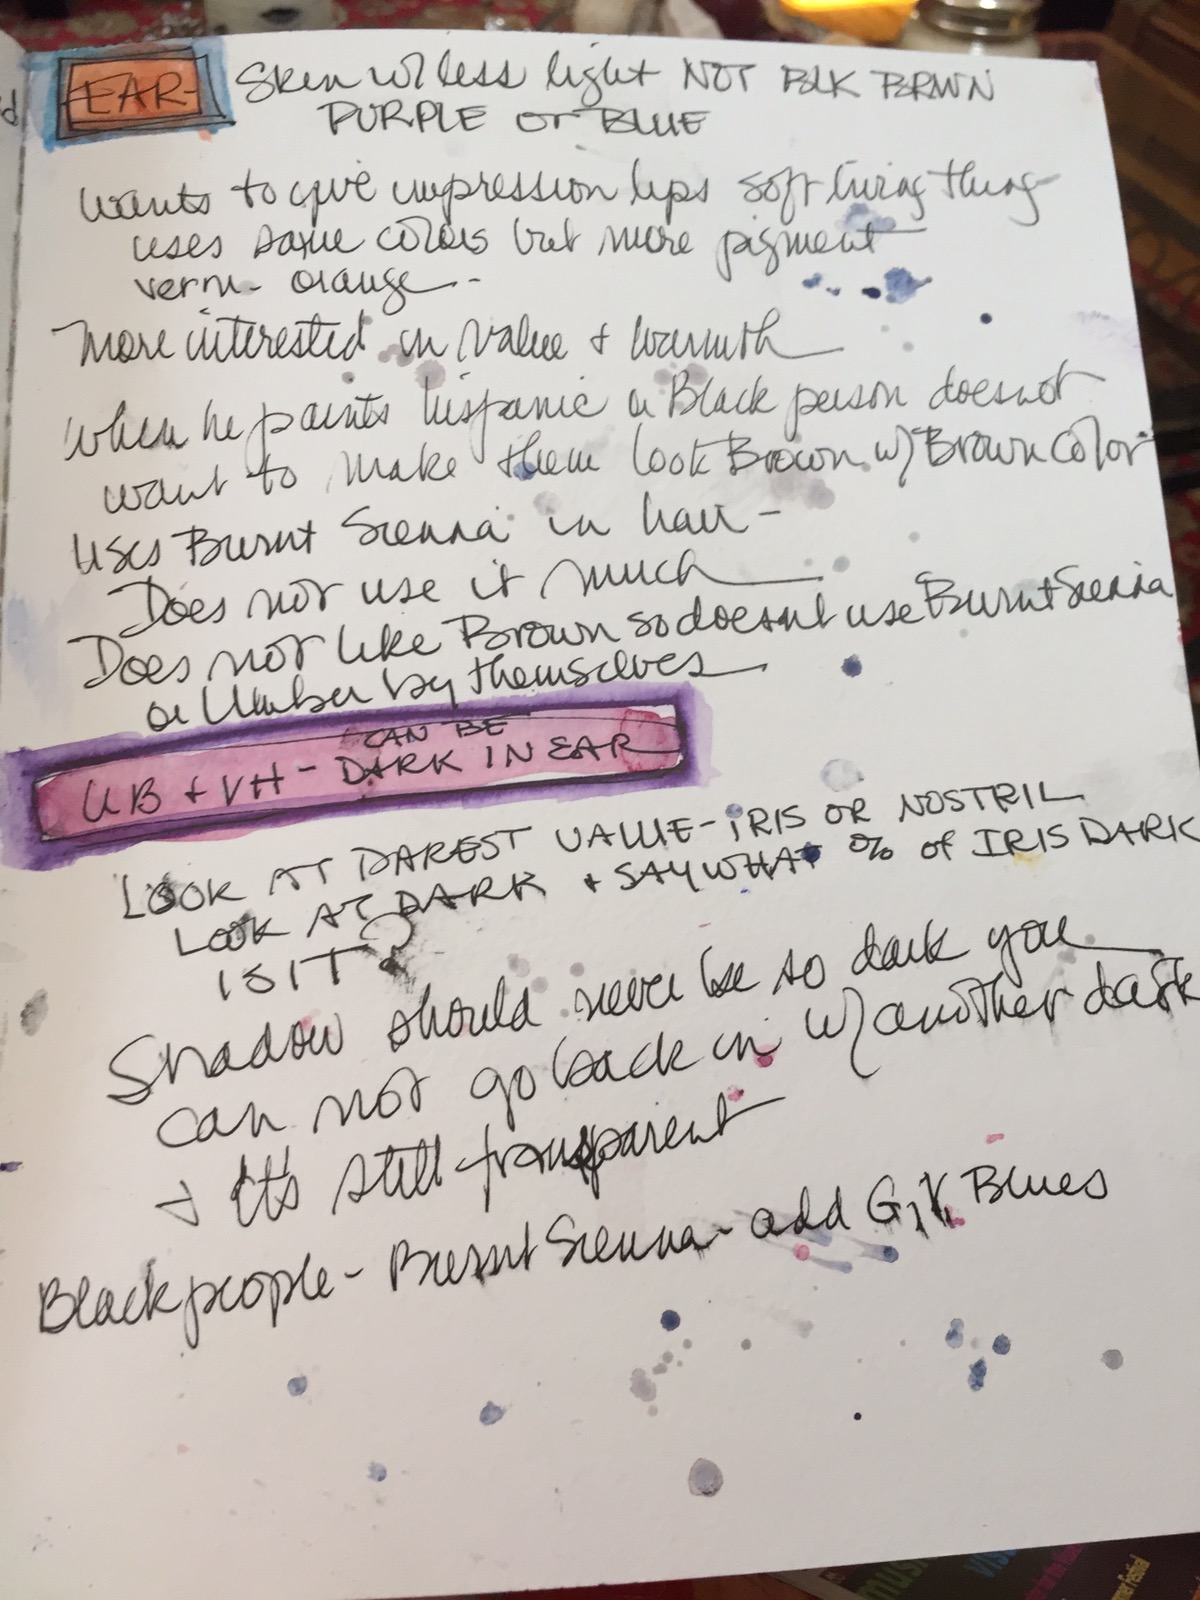 EAR- Skin w/ less light NOT BLK BRWN
PURPLE or BLUE
wants to give impression lips soft living thing
uses same colors but more pigment
verm- orange--
More interested in value + warmth
When he paints hispanic or Black person does not
want to make them look Brown w/ Brown Color
Uses Burnt Sienna in hair-
Does not use it much
Does not like Brown so doesnt use Burnt Sienna
or Umber by themselves
CAN BE
UB + VH - DARK IN EAR
LOOK AT DAREST VALUE-IRIS OR NOSTRIL
LOOK AT DARK + SAY WHAT % of IRIS DARK
IS IT?
Shadow should never be so dark you
can not go back in w/ another dark
+ Its still transparent
Black people - Burnt Sienna - add G, V, Blues